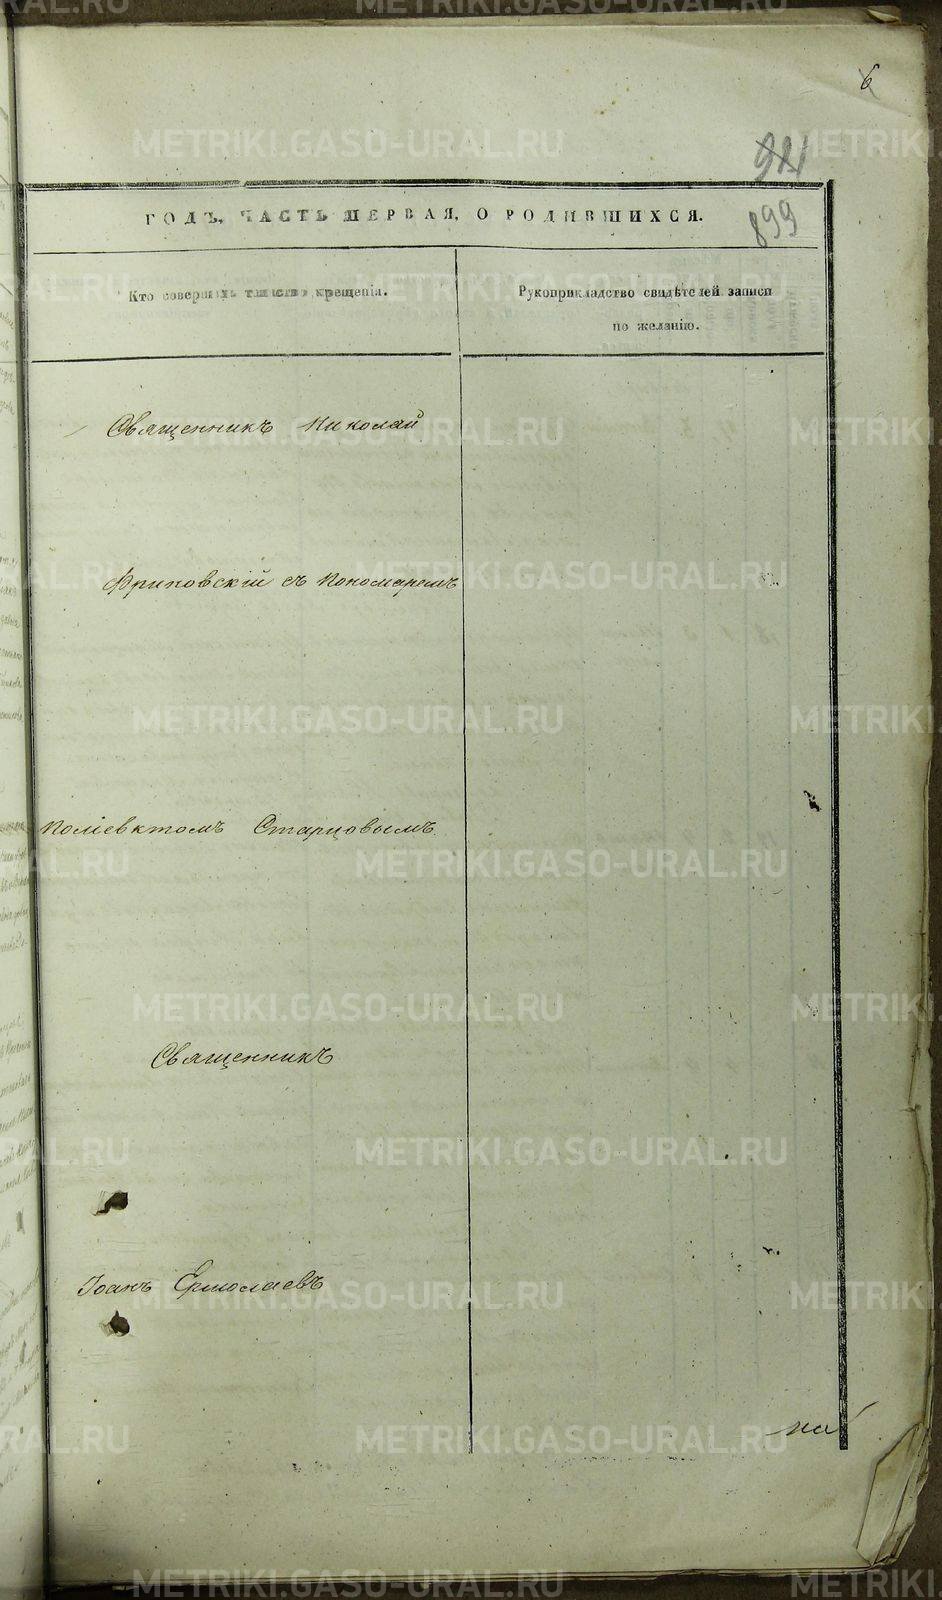 6
899
ГОДЪ, ЧАСТЬ ПЕРВАЯ, О РОДИВШИХСЯ.
Кто совершалъ таинство крещенія.
Рукоприкладство свидѣтелей записи
по желанію.
Священникъ Николай
Фриповскій съ Пономаремъ
Поліевктомъ Старцовымъ
Священникъ
Іоанъ Ермолаевъ
METRIKI.GASO-URAL.RU